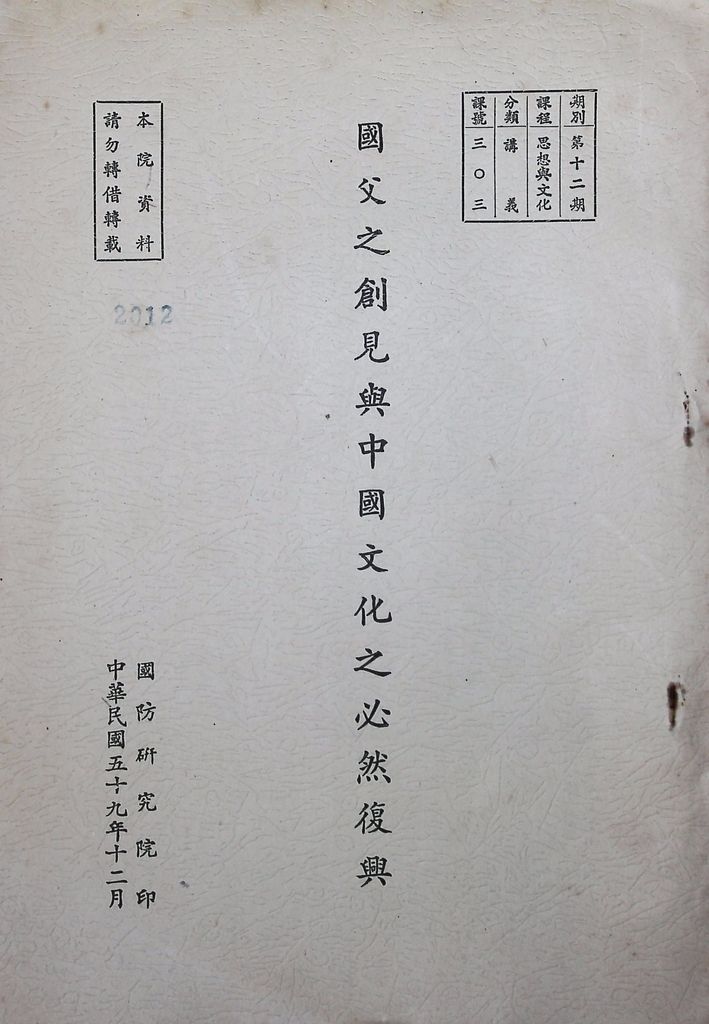 期別 第十二期
課程 思想與文化
分類 講義
課號 三〇三
國父之創見與中國文化之必然復興
本院資料
請勿轉借轉載
2012
國防研究院印
中華民國五十九年十二月